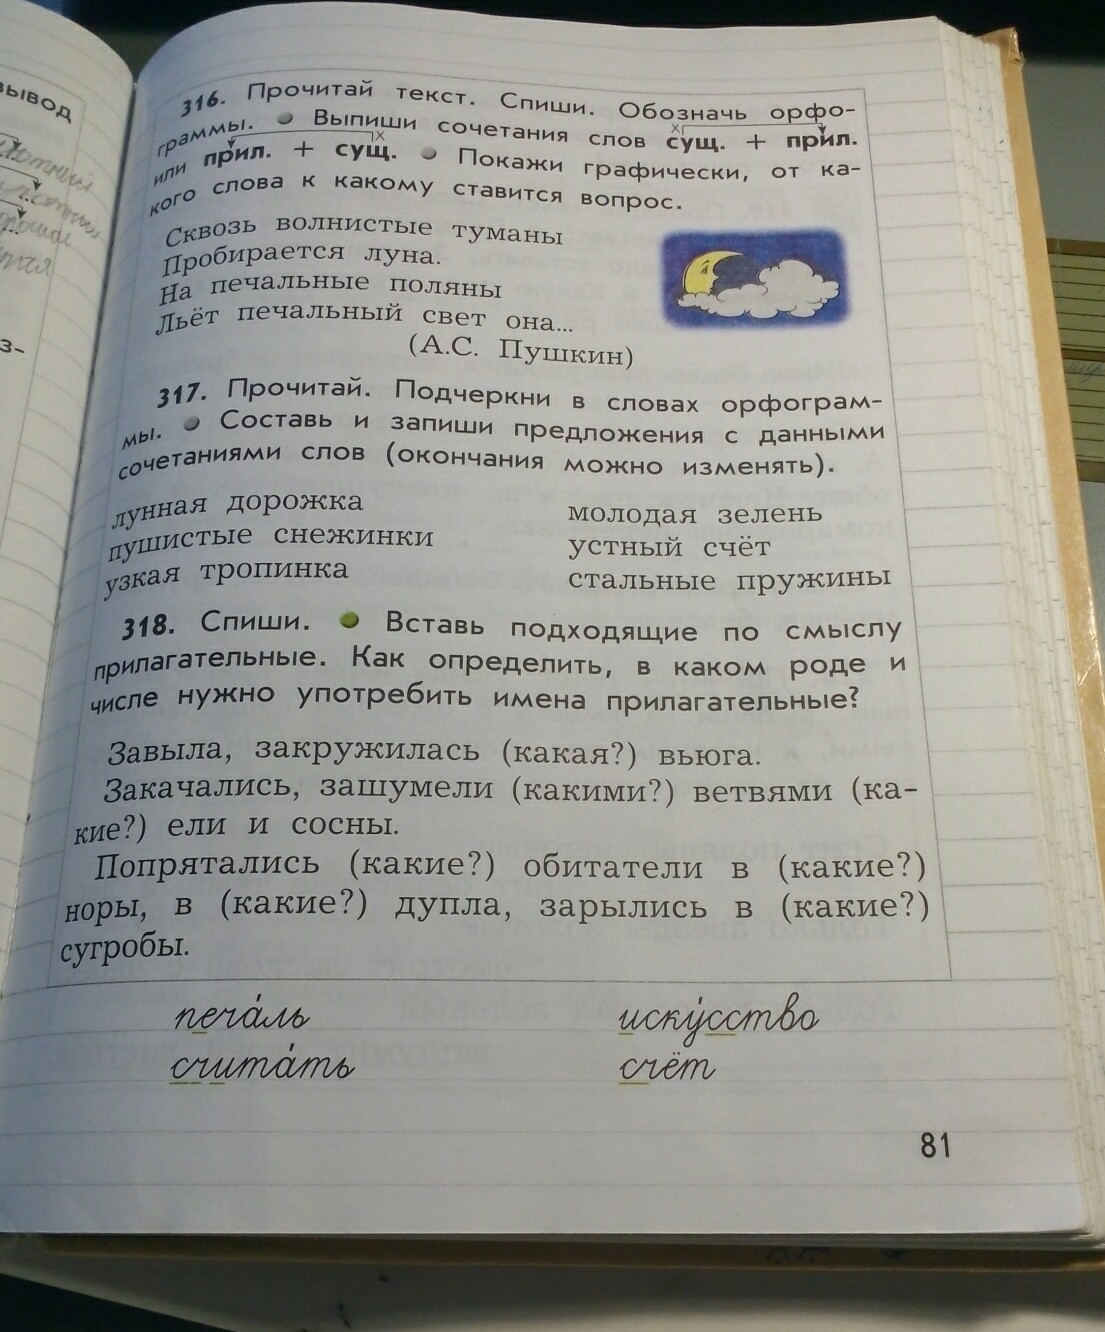 вывод
з-
316. Прочитай текст. Спиши. Обозначь орфо-
граммы. Выпиши сочетания слов сущ. + прил.
или прил. + сущ. Покажи графически, от ка-
кого слова к какому ставится вопрос.
Сквозь волнистые туманы
Пробирается луна.
На печальные поляны
Льёт печальный свет она...
(А.С. Пушкин)
317. Прочитай. Подчеркни в словах орфограм-
мы. Составь и запиши предложения с данными
сочетаниями слов (окончания можно изменять).
лунная дорожка
пушистые снежинки
узкая тропинка
молодая зелень
устный счёт
стальные пружины
318. Спиши. Вставь подходящие по смыслу
прилагательные. Как определить, в каком роде и
числе нужно употребить имена прилагательные?
Завыла, закружилась (какая?) вьюга.
Закачались, зашумели (какими?) ветвями (ка-
кие?) ели и сосны.
Попрятались (какие?) обитатели в (какие?)
норы, в (какие?) дупла, зарылись в (какие?)
сугробы.
печа́ль
счита́ть
иску́сство
счёт
81